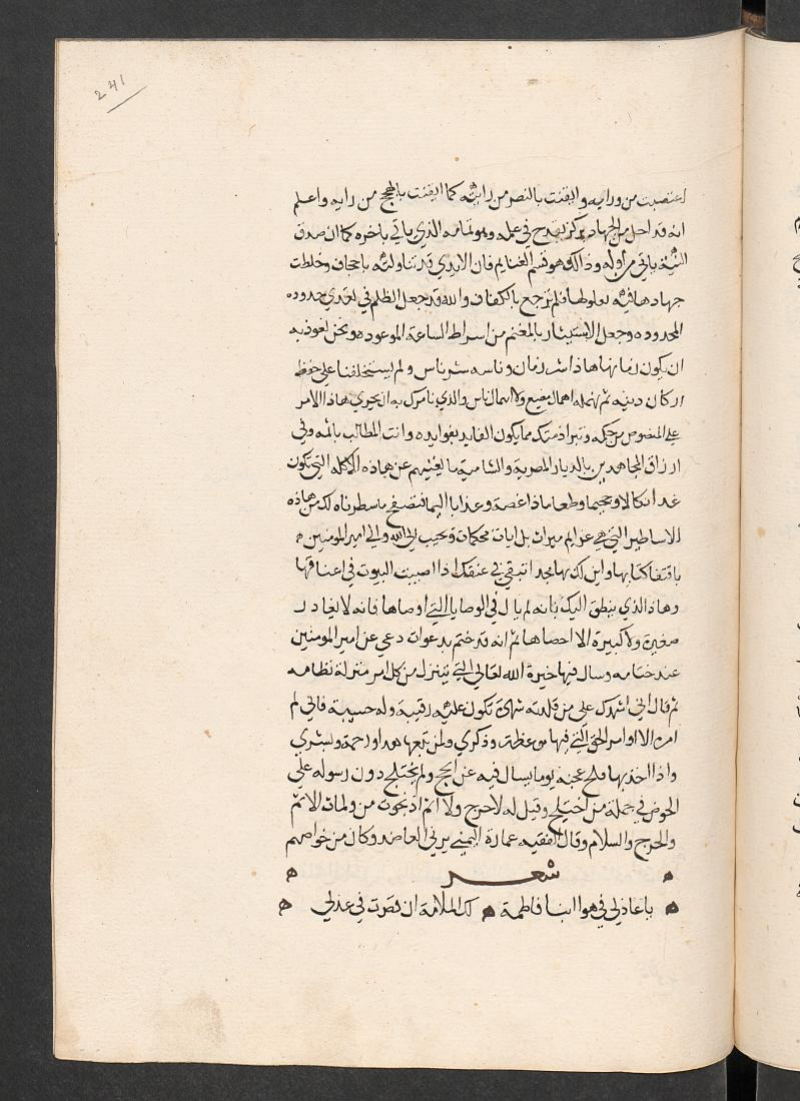 241
اعتصبت من ورايه وايقنت بالنصر من رايته كما ايقنت بالحجج من رايه واعلم
انه قد اخل من الجهاد بركن يقدح في عمله وهو تمامه الذي ياتي باخره كما ان صدق
النية ياتي من اوله وذالك هو قسم الغنايم فان الايدي قد تناولته باجحاف وخلطت
جهادها فيه بغلولها فلم ترجع بالكفاف والله قد جعل الظلم في تعدي حدوده
المحدوده وجعل الاستيثار بالمغنم من اسراط الساعة الموعوده ونحن نعوذ به
ان يكون زماننا هاذا شر زمان وناسه شر ناس ولم يستخلفنا على حفظ
اركان دينه ثم نهمله اهمال مضيع ولا اهمال ناس والذي نامرك به ان تجري هاذا الامر
على المنصوص من حكمه وتبرا ذمتك مما يكون الفايز بفوايده وانت المطالب باثمه وفي
ارزاق المجاهدين بالديار المصرية والشامية ما يغنيهم عن هاذه الاكلة التي تكون
غدا انكالا وجحيما وطعاما ذا غصة وعذابا اليما فتصفح ما سطرناه لك من هاذه
الاساطير التي هي عزايم مبرمات بل ايات محكمات وتحبب الى الله والى امير المومنين
باقتفا كتابها وابن لك بها مجدا تبقي في عنقك اذا اصيبت البيوت في اعناقها
وهاذا الذي ينطق اليك بانه لم يال في الوصايا التي اوصاها فانه لا يغادر
صغيرة ولا كبيرة الا احصاها ثم انه قد ختم بدعوات دعي عن امير المومنين
عند ختامه وسال فيها خيرة الله تعالى التي تتنزل من كل امر منزلة نظامه
ثم قال اني اشهدك على من قلدته شهادة تكون عليه رقيبة وله حسيبة فاني لم
امره الا اوامر الحق التي فيها موعظة وذكري ولمن تبعها هدا ورحمة وبشري
واذا اخذ بها فلج بحجته يوما يسال فيه عن الحجج ولم يختلج دون رسوله على
الحوض في جملة من اختلج وقيل له لا حرج ولا اثم اذ نجوت من ورطات الاثم
والحرج والسلام وقال الفقيه عمارة اليمني يرثي العاضد وكان من خواصهم
شعر
يا عاذلي في هوا ابنا فاطمة لك الملامة ان قصرت في عذلي